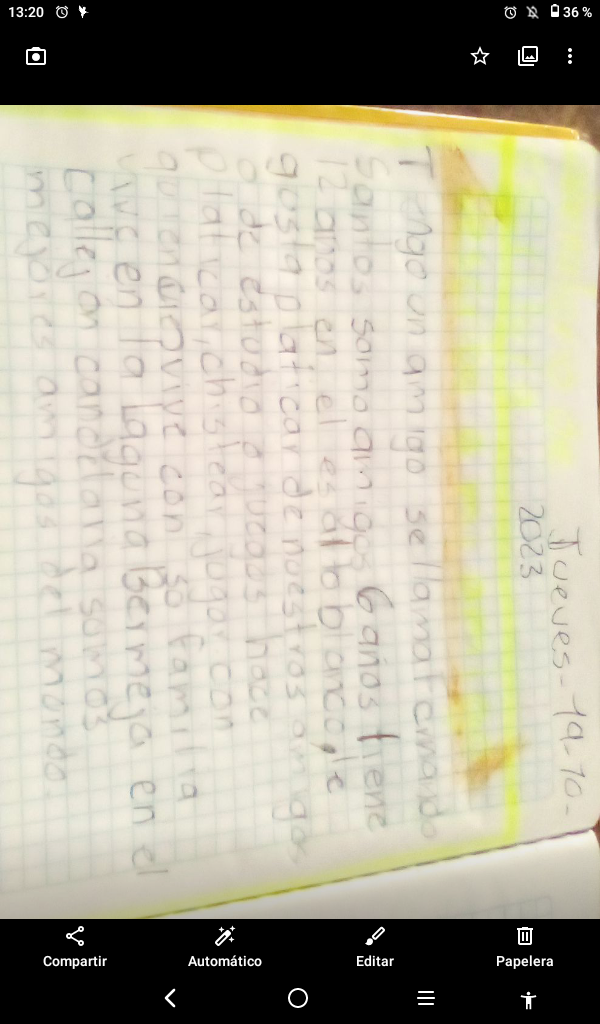 13:20
36 %
Jueves-19-10-
2023
Tengo un amigo se llama Fernando
Santos samo amigos 6 años tiene
12 años en el es alto blanco, le
gosta platicar de nuestros amigos
o de estudio o jugos hace
platicar, chistear, jugar con
quien vive con so familia
vive en la laguna Bermeja en el
callejon candelaria somos
mejores amigos del mondo.
Compartir
Automático
Editar
Papelera